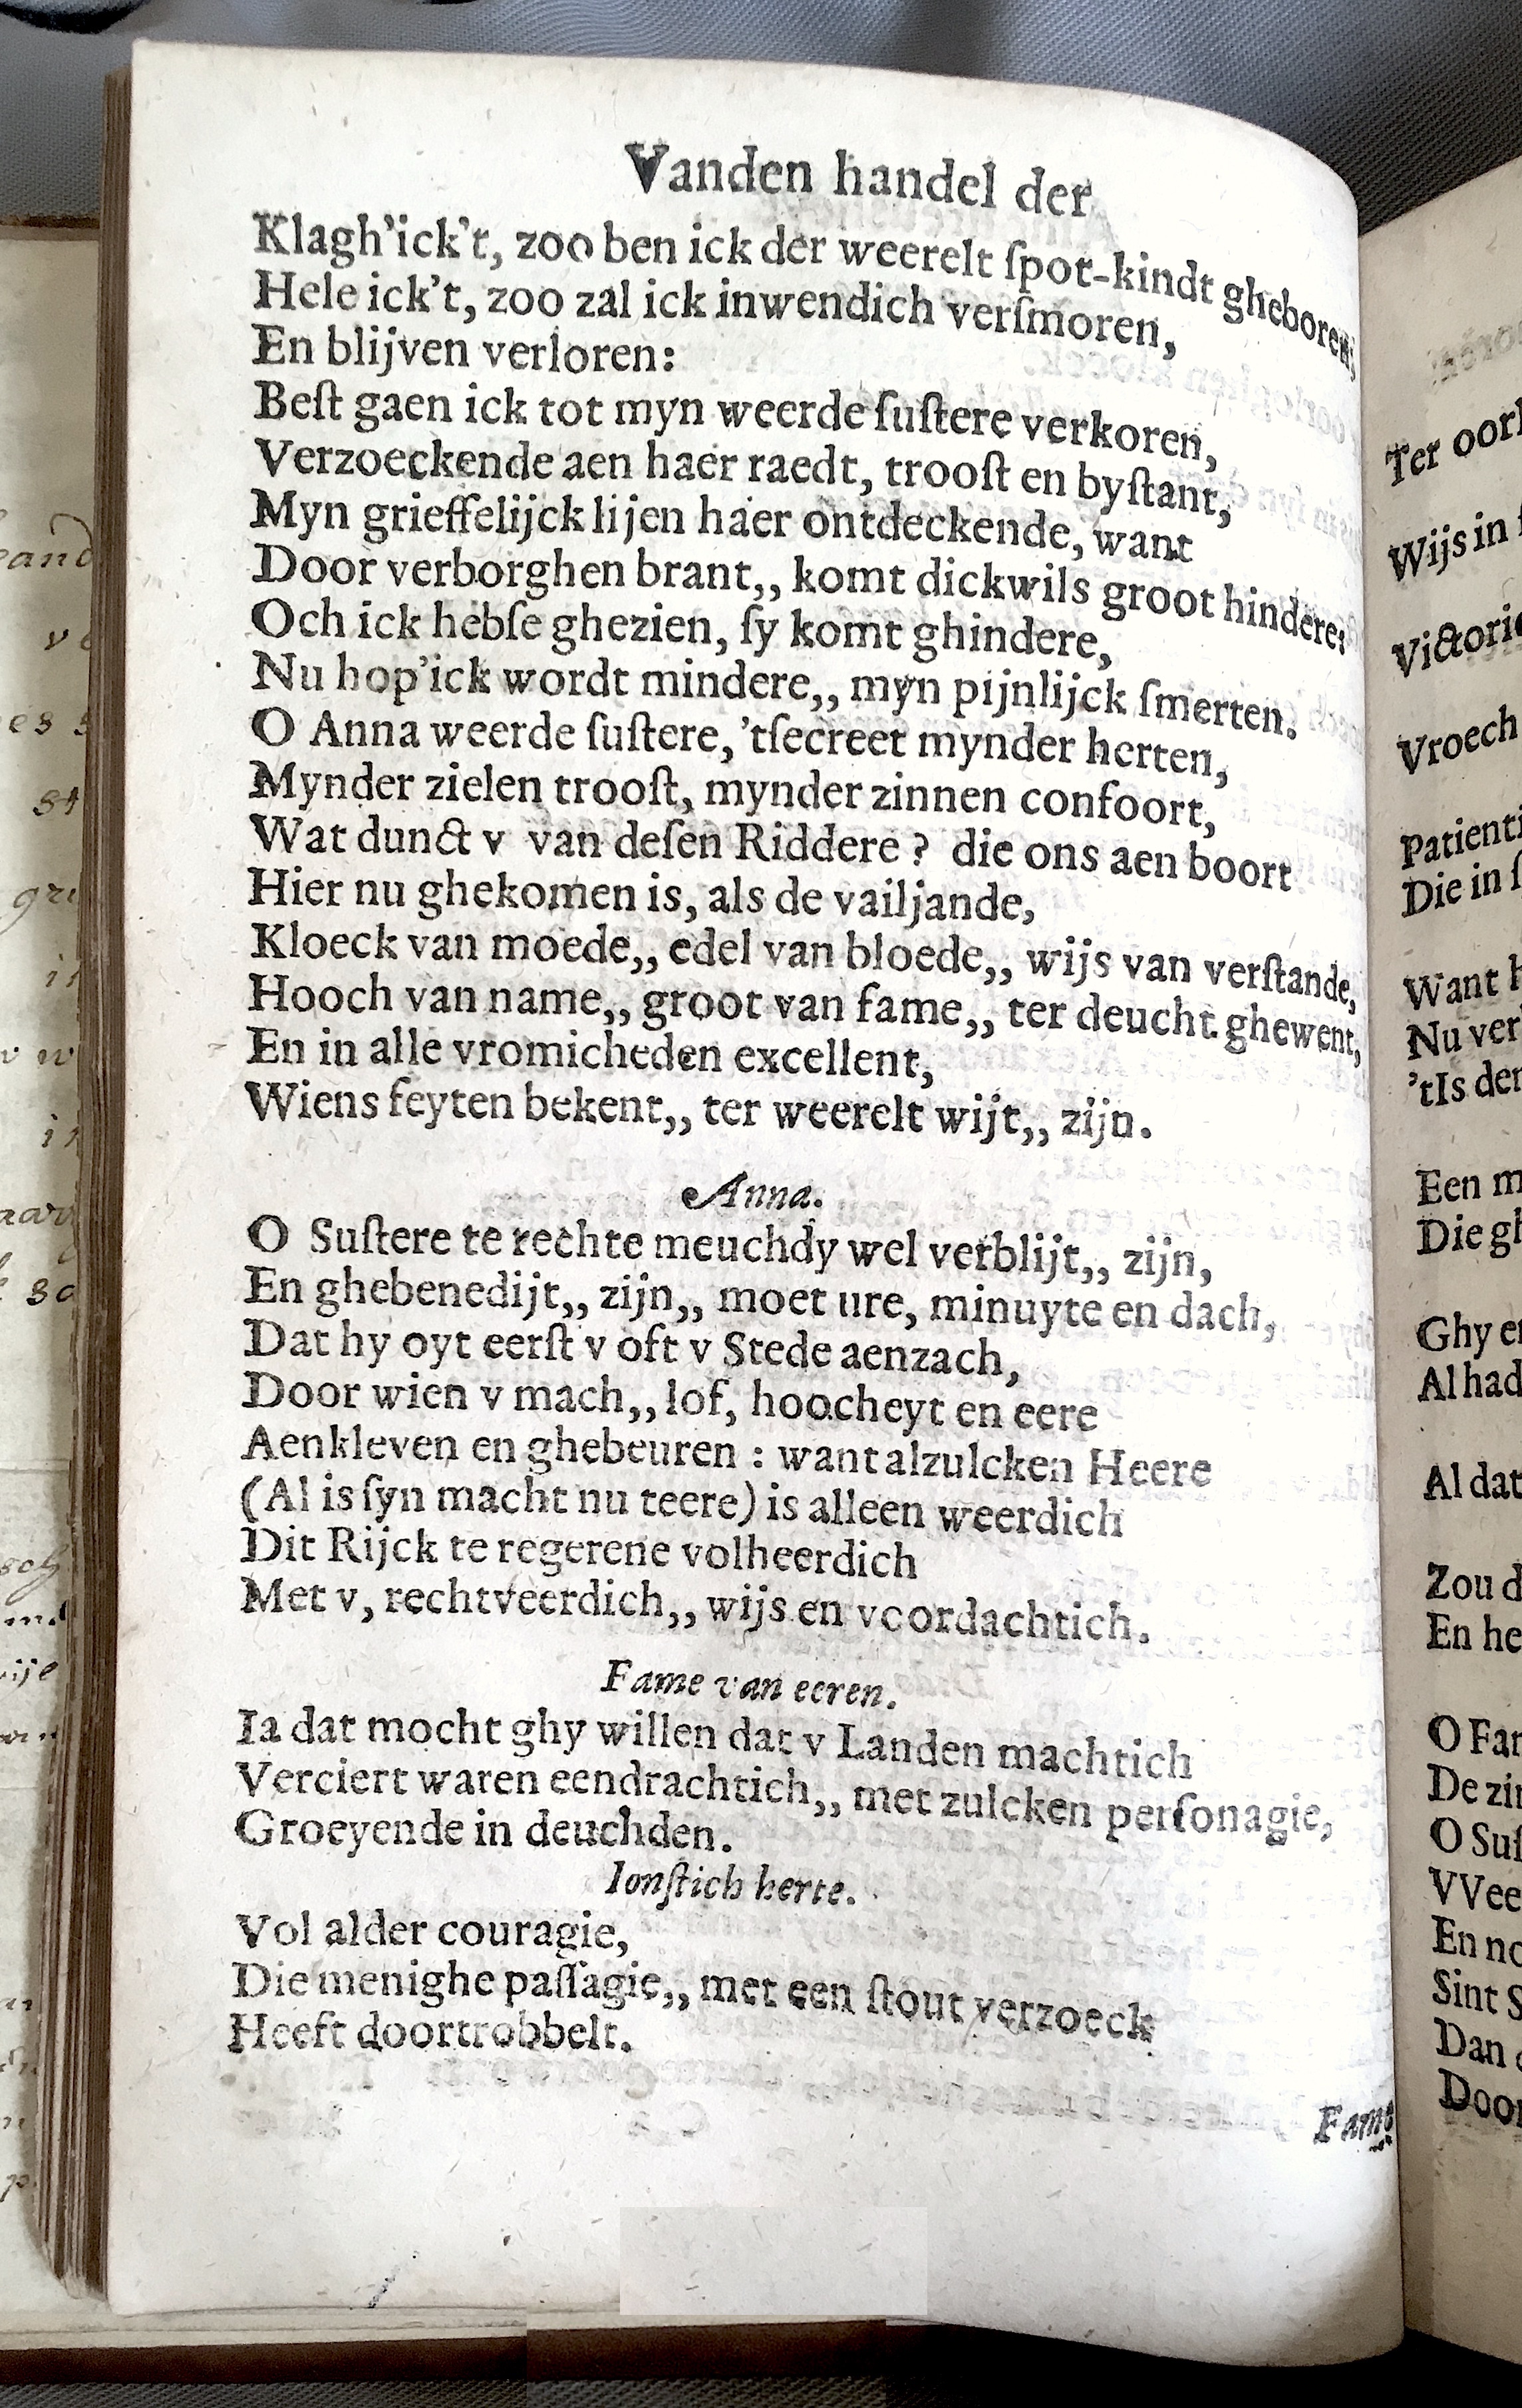 Vanden handel der
Klagh'ick't, zoo ben ick der weerelt ſpot-kindt gheboren;
Hele ick't, zoo zal ick inwendich verſmoren,
En blijven verloren:
Beſt gaen ick tot myn weerde ſuſtere verkoren,
Verzoeckende aen haer raedt, trooſt en byſtant,
Myn grieffelijck lijen haer ontdeckende, want
Door verborghen brant,, komt dickwils groot hindere:
Och ick hebſe ghezien, ſy komt ghindere,
Nu hop'ick wordt mindere,, myn pijnlijck ſmerten.
O Anna weerde ſuſtere, 'tſecreet mynder herten,
Mynder zielen trooſt, mynder zinnen confoort,
Wat dunct v van deſen Riddere? die ons aen boort
Hier nu ghekomen is, als de vailjande,
Kloeck van moede,, edel van bloede,, wijs van verſtande,
Hooch van name,, groot van fame,, ter deucht ghewent,
En in alle vromicheden excellent,
Wiens feyten bekent,, ter weerelt wijt,, zijn.
Anna.
O Suſtere te rechte meuchdy wel verblijt,, zijn,
En ghebenedijt,, zijn,, moet ure, minuyte en dach,
Dat hy oyt eerſt v oft v Stede aenzach,
Door wien v mach,, lof, hoocheyt en eere
Aenkleven en ghebeuren : want alzulcken Heere
(Al is ſyn macht nu teere) is alleen weerdich
Dit Rijck te regerene volheerdich
Met v, rechtveerdich,, wijs en voordachtich.
Fame van eeren.
Ia dat mocht ghy willen dat v Landen machtich
Verciert waren eendrachtich,, met zulcken perſonagie,
Groeyende in deuchden.
Ionſtich herte.
Vol alder couragie,
Die menighe paſſagie,, met een ſtout verzoeck
Heeft doortrobbelt.
Fame
Ter
Wijs in
Victorie
Vroech
Die in
Want
Nu
'tIs
Een
Ghy
Al dat
Zou
En
O
De
O
En
Sint
Dan